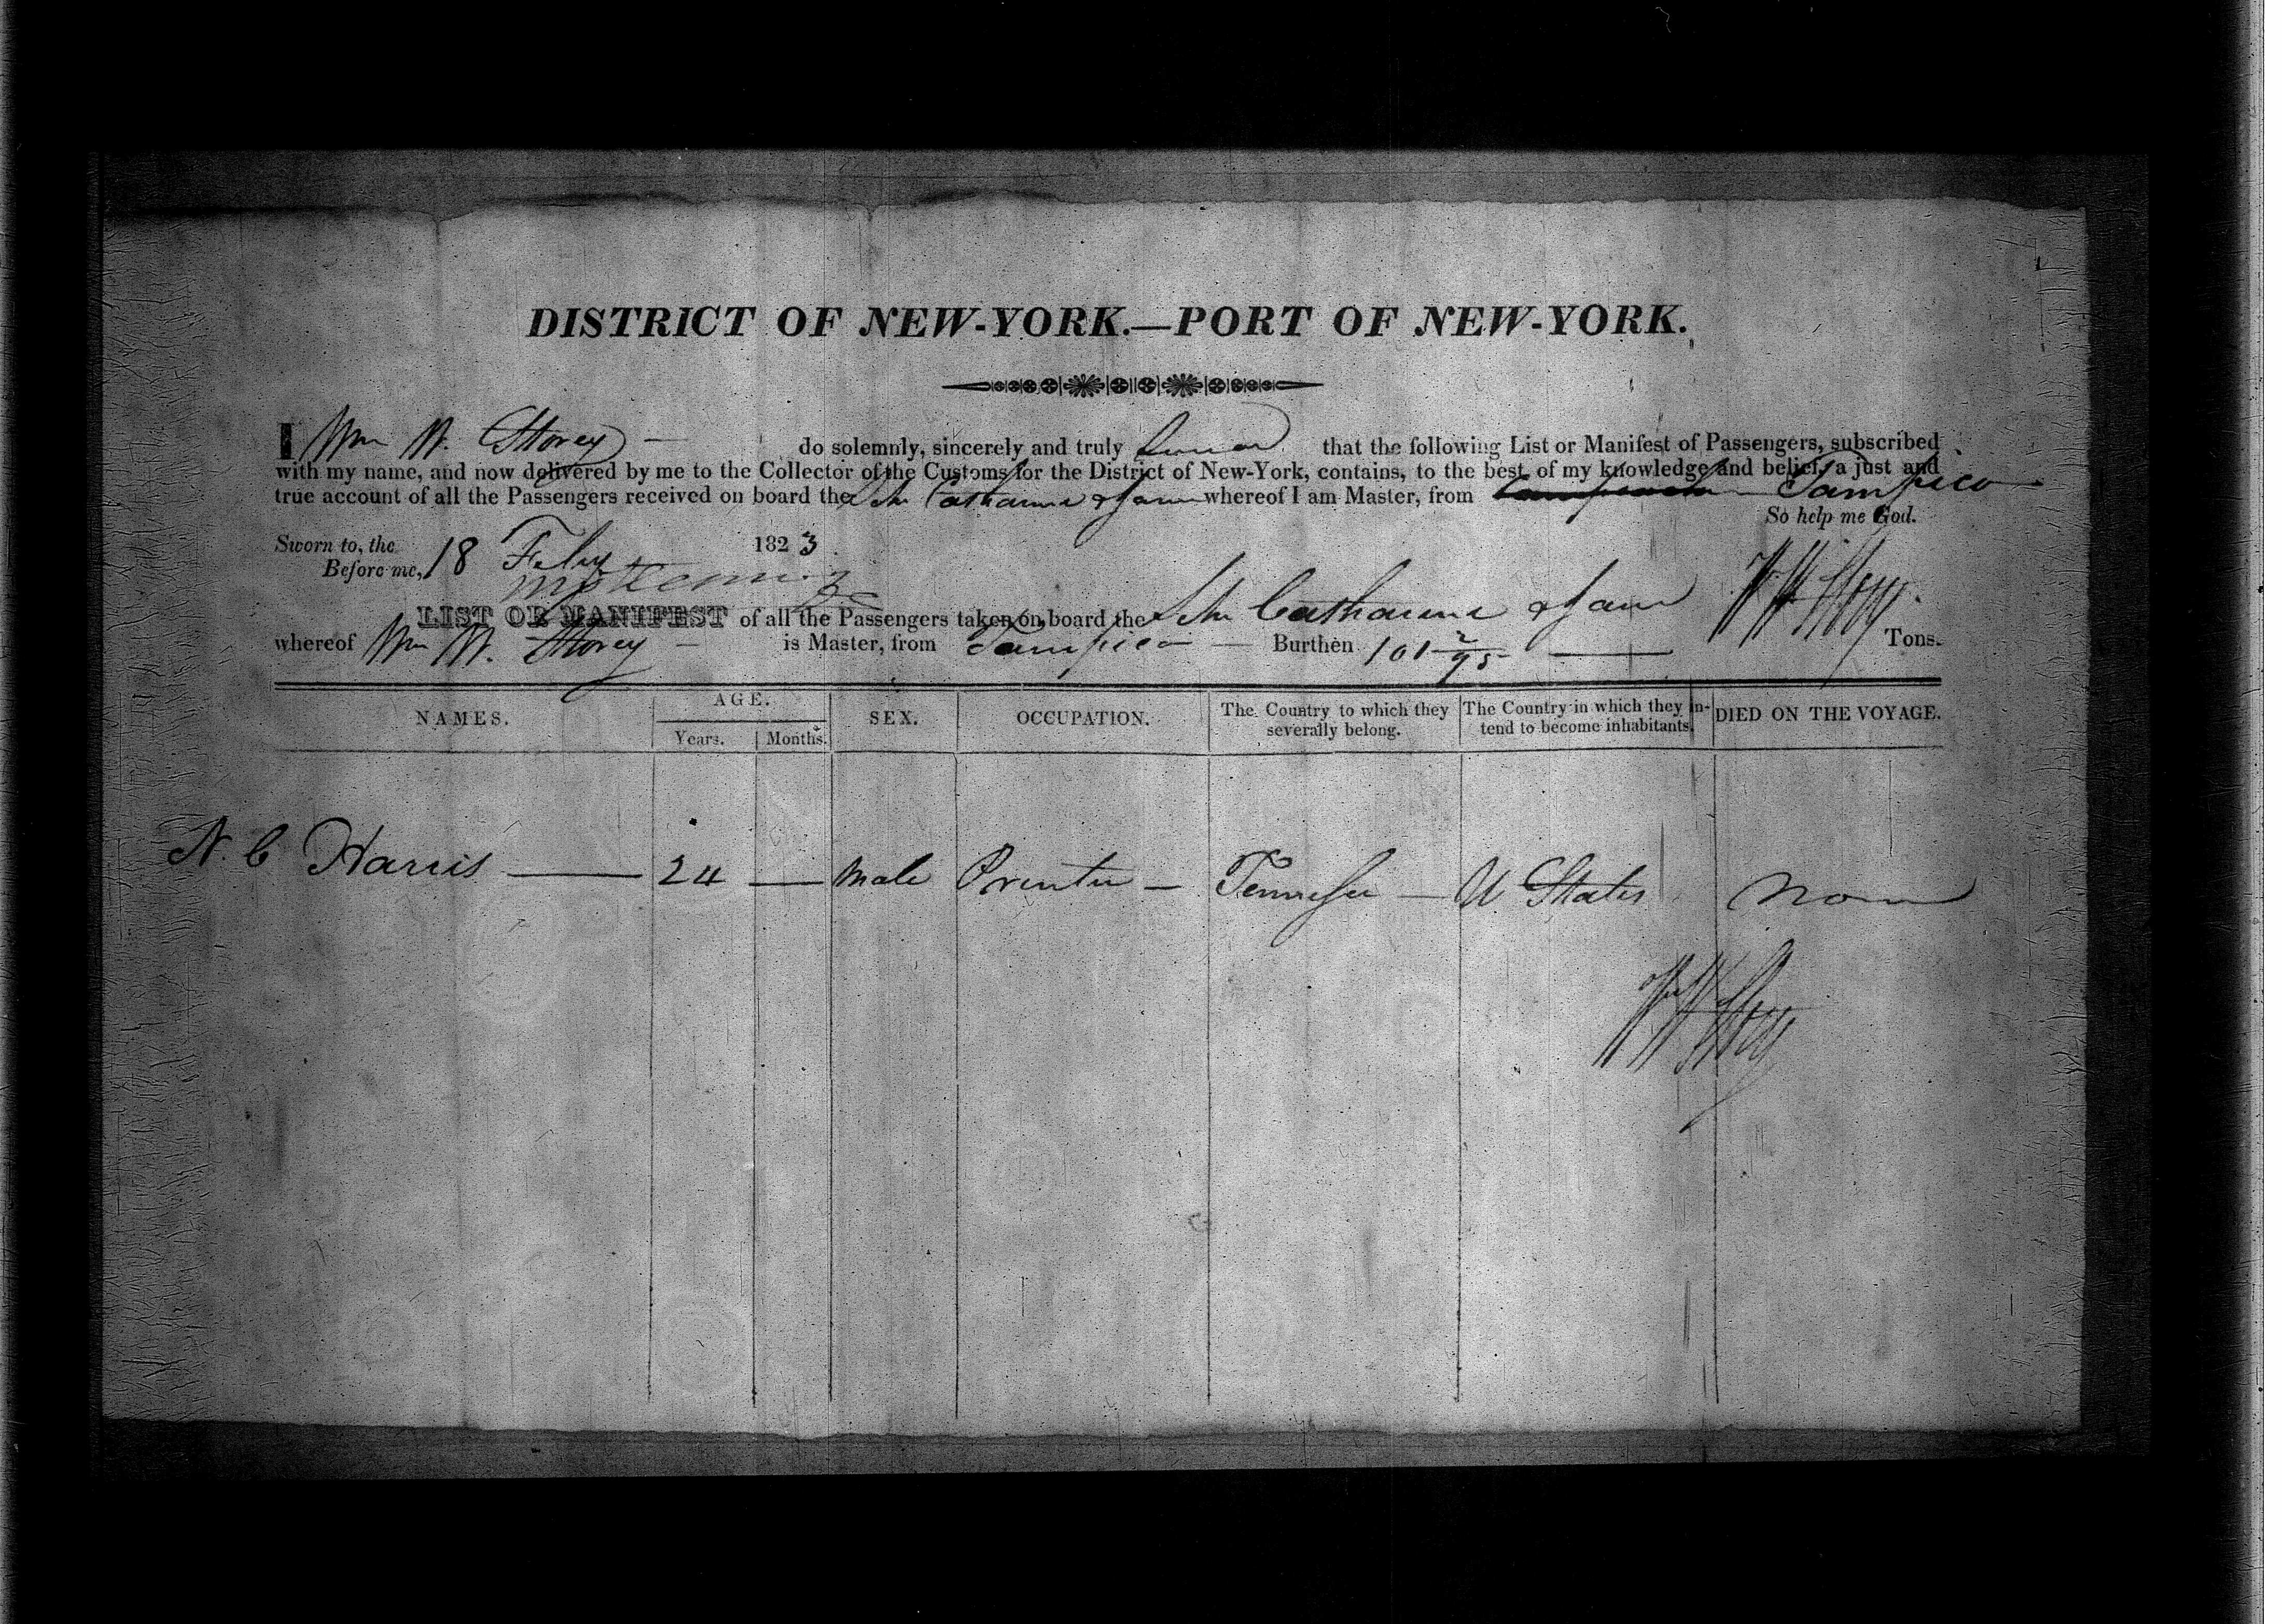 DISTRICT OF NEW-YORK.—PORT OF NEW-YORK.
I Wm W. Storey — do solemnly, sincerely and truly swear that the following List or Manifest of Passengers, subscribed
with my name, and now delivered by me to the Collector of the Customs for the District of New-York, contains, to the best of my knowledge and belief, a just and
true account of all the Passengers received on board the Schr Catharine & Jane whereof I am Master, from Tampico
So help me God.
Sworn to, the 18 Feby 1823
Before me,
LIST OR MANIFEST of all the Passengers taken on board the Schr Catharine & Jane
whereof Wm W. Storey — is Master, from Tampico — Burthen 101 2/95 — Tons.
NAMES. AGE. SEX. OCCUPATION. The Country to which they severally belong. The Country in which they intend to become inhabitants. DIED ON THE VOYAGE.
Years. Months.
N. C Harris — 24 — Male Printer — Tennessee — U States None
Wm W Storey